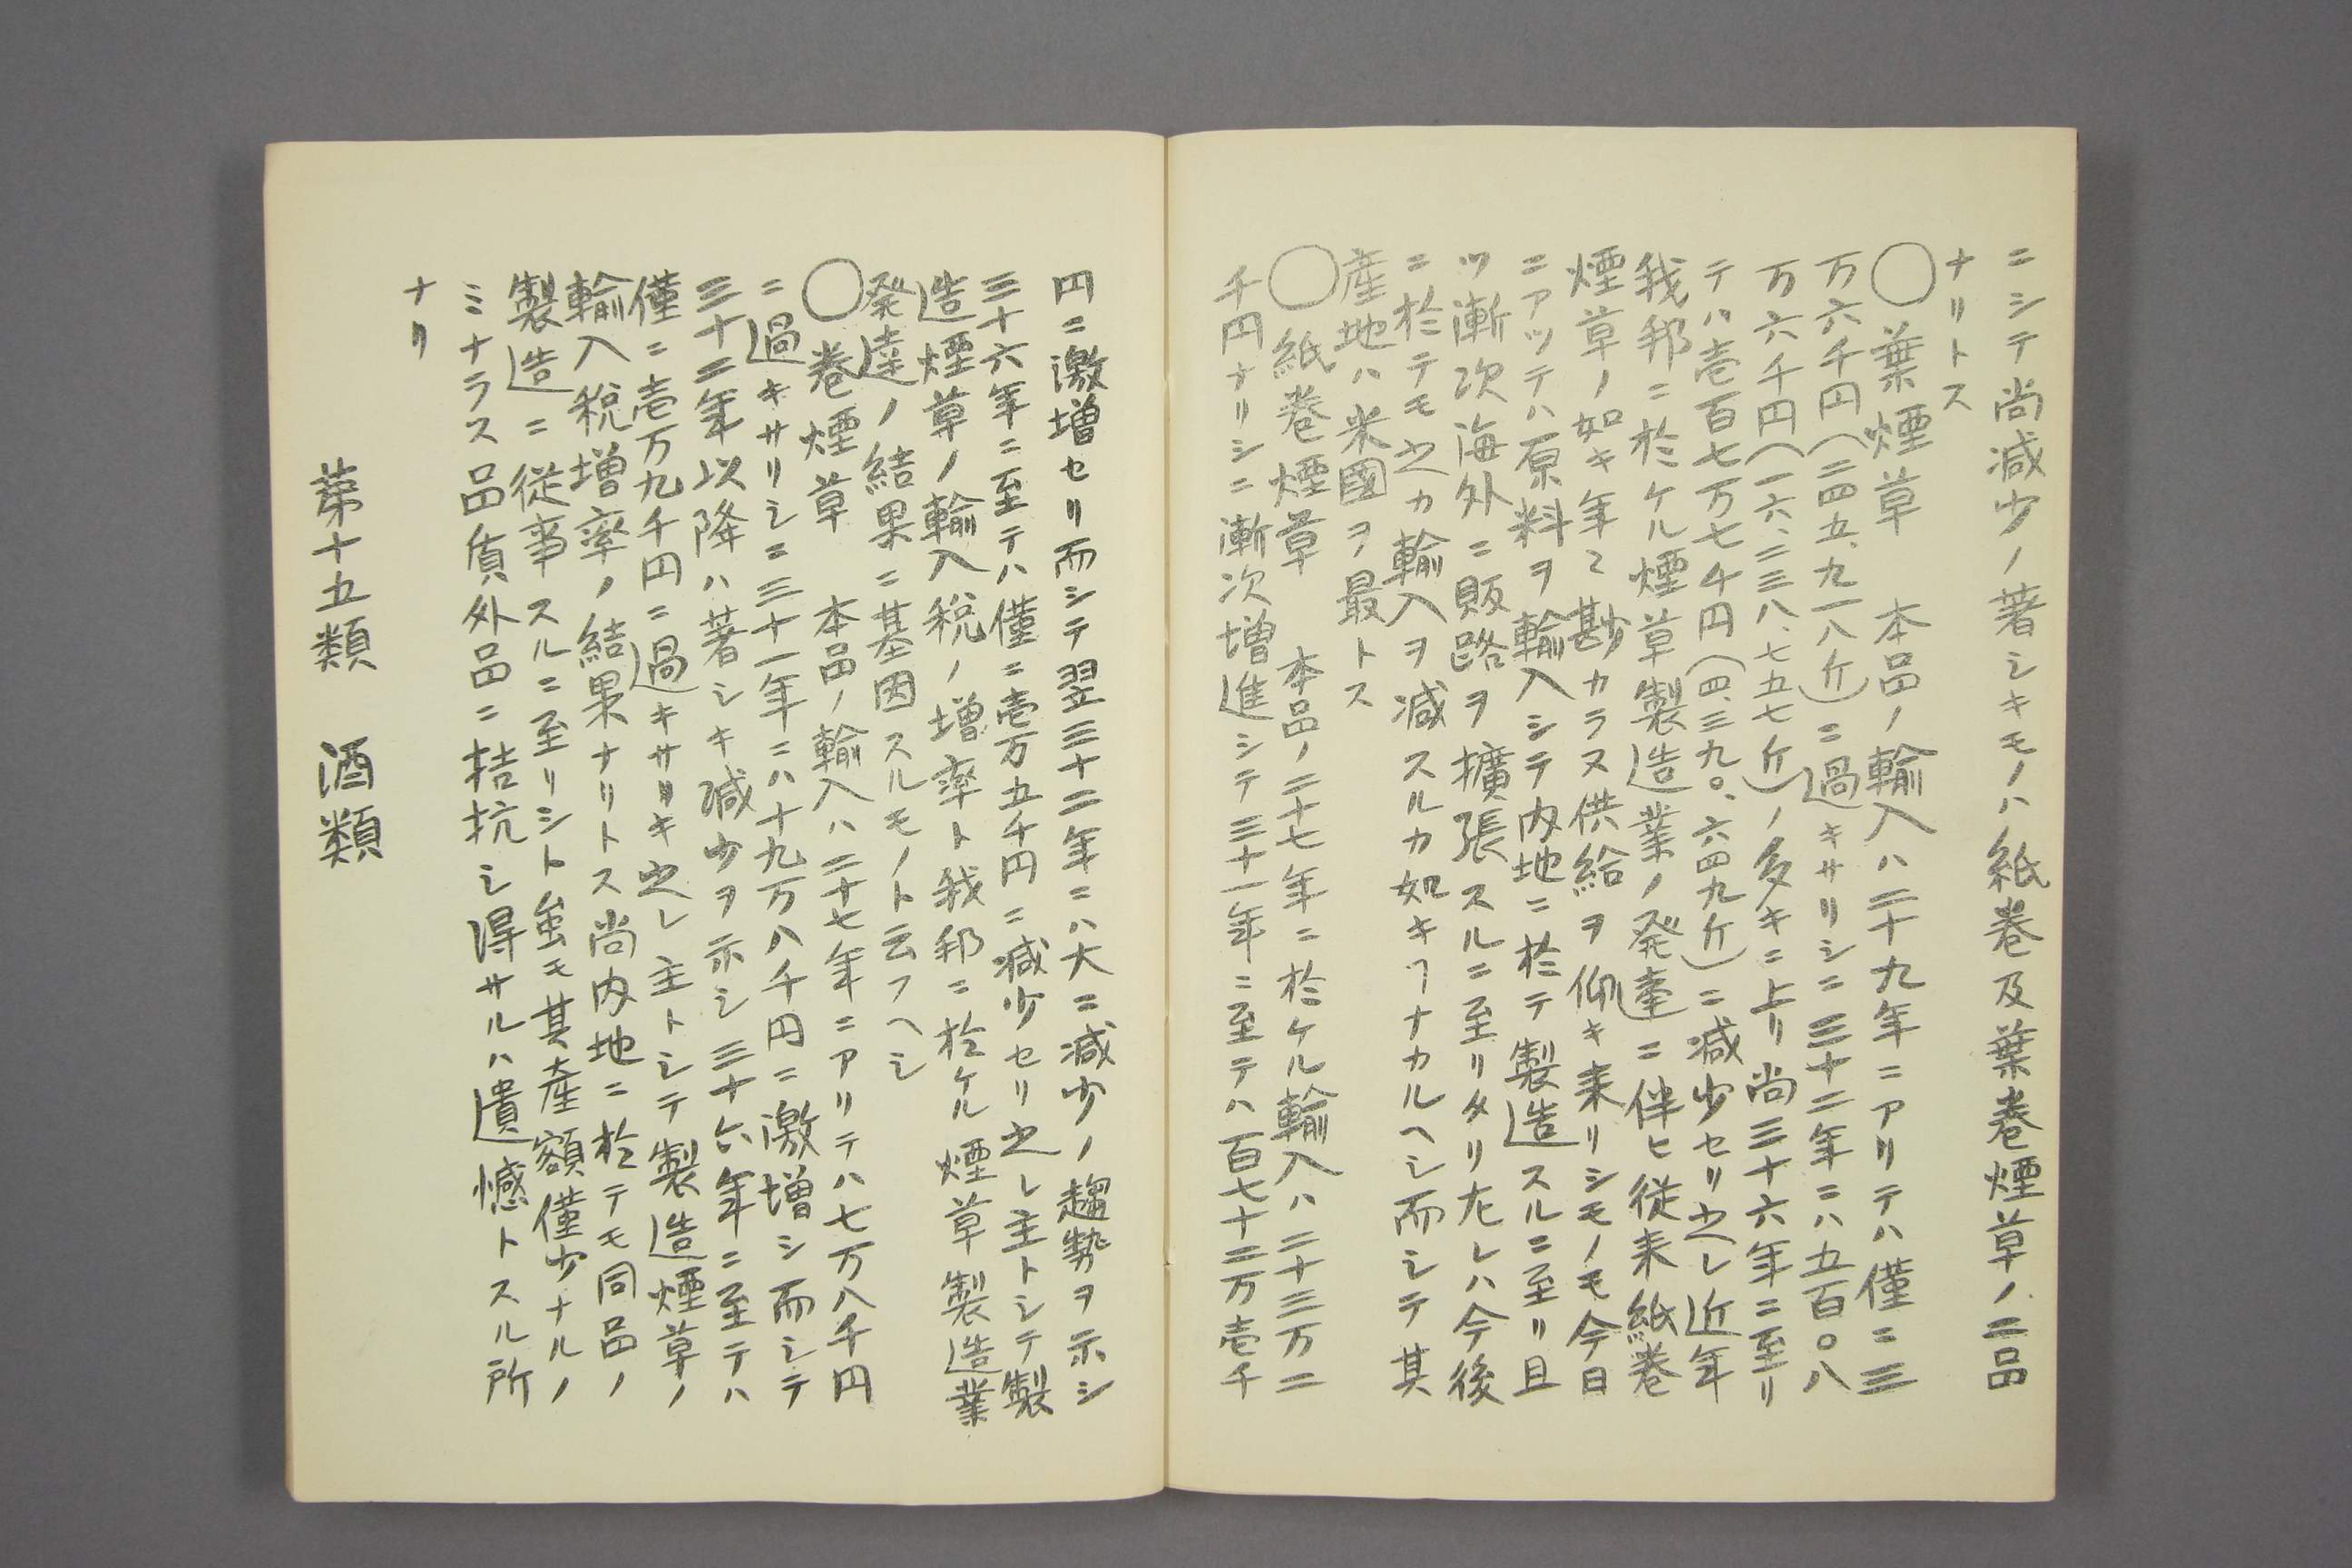 ニシテ尚減少ノ著シキモノハ紙巻及葉巻煙草ノ二品
ナリトス
〇葉煙草　本品ノ輸入ハ二十九年ニアリテハ僅ニ三
万六千円(二四五、九一八斤)ニ過キサリシニ三十二年ニハ五百〇八
万六千円(一六、三三八、七五七斤)ノ多キニ上リ尚三十六年ニ至リ
テハ壱百七万七千円(四、三九〇、六四九斤)ニ減少セリ之レ近年
我邦ニ於ケル煙草製造業ノ発達ニ伴ヒ従来紙巻
煙草ノ如キ年々尠カラス供給ヲ仰キ来リシモノモ今日
ニアツテハ原料ヲ輸入シテ内地ニ於テ製造スルニ至リ且
ツ漸次海外ニ販路ヲ擴張スルニ至リタリ左レハ今後
ニ於テモ之カ輸入ヲ減スルカ如キヿナカルヘシ而シテ其
産地ハ米國ヲ最トス
〇紙巻煙草　本品ノ二十七年ニ於ケル輸入ハ二十三万二
千円ナリシニ漸次増進シテ三十一年ニ至テハ百七十二万壱千
円ニ激増セリ而シテ翌三十二年ニハ大ニ減少ノ趨勢ヲ示シ
三十六年ニ至テハ僅ニ壱万五千円ニ減少セリ之レ主トシテ製
造煙草ノ輸入税ノ増率ト我邦ニ於ケル煙草製造業
発達ノ結果ニ基因スルモノト云フヘシ
〇巻煙草　本品ノ輸入ハ二十七年ニアリテハ七万八千円
ニ過キサリシニ三十一年ニハ十九万八千円ニ激増シ而シテ
三十二年以降ハ著シキ減少ヲ示シ三十六年ニ至テハ
僅ニ壱万九千円ニ過キサリキ之レ主トシテ製造煙草ノ
輸入税増率ノ結果ナリトス尚内地ニ於テモ同品ノ
製造ニ従事スルニ至リシト虽モ其産額僅少ナルノ
ミナラス品質外品ニ拮抗シ得サルハ遺憾トスル所
ナリ
第十五類　酒類